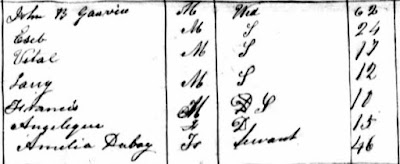 John B Gauvin M Wid 62
Eseb M S 24
Vital M S 17
M S 12
Francis M D S 10
Angelique D 15
Amelia Dubay Fr Servant 46